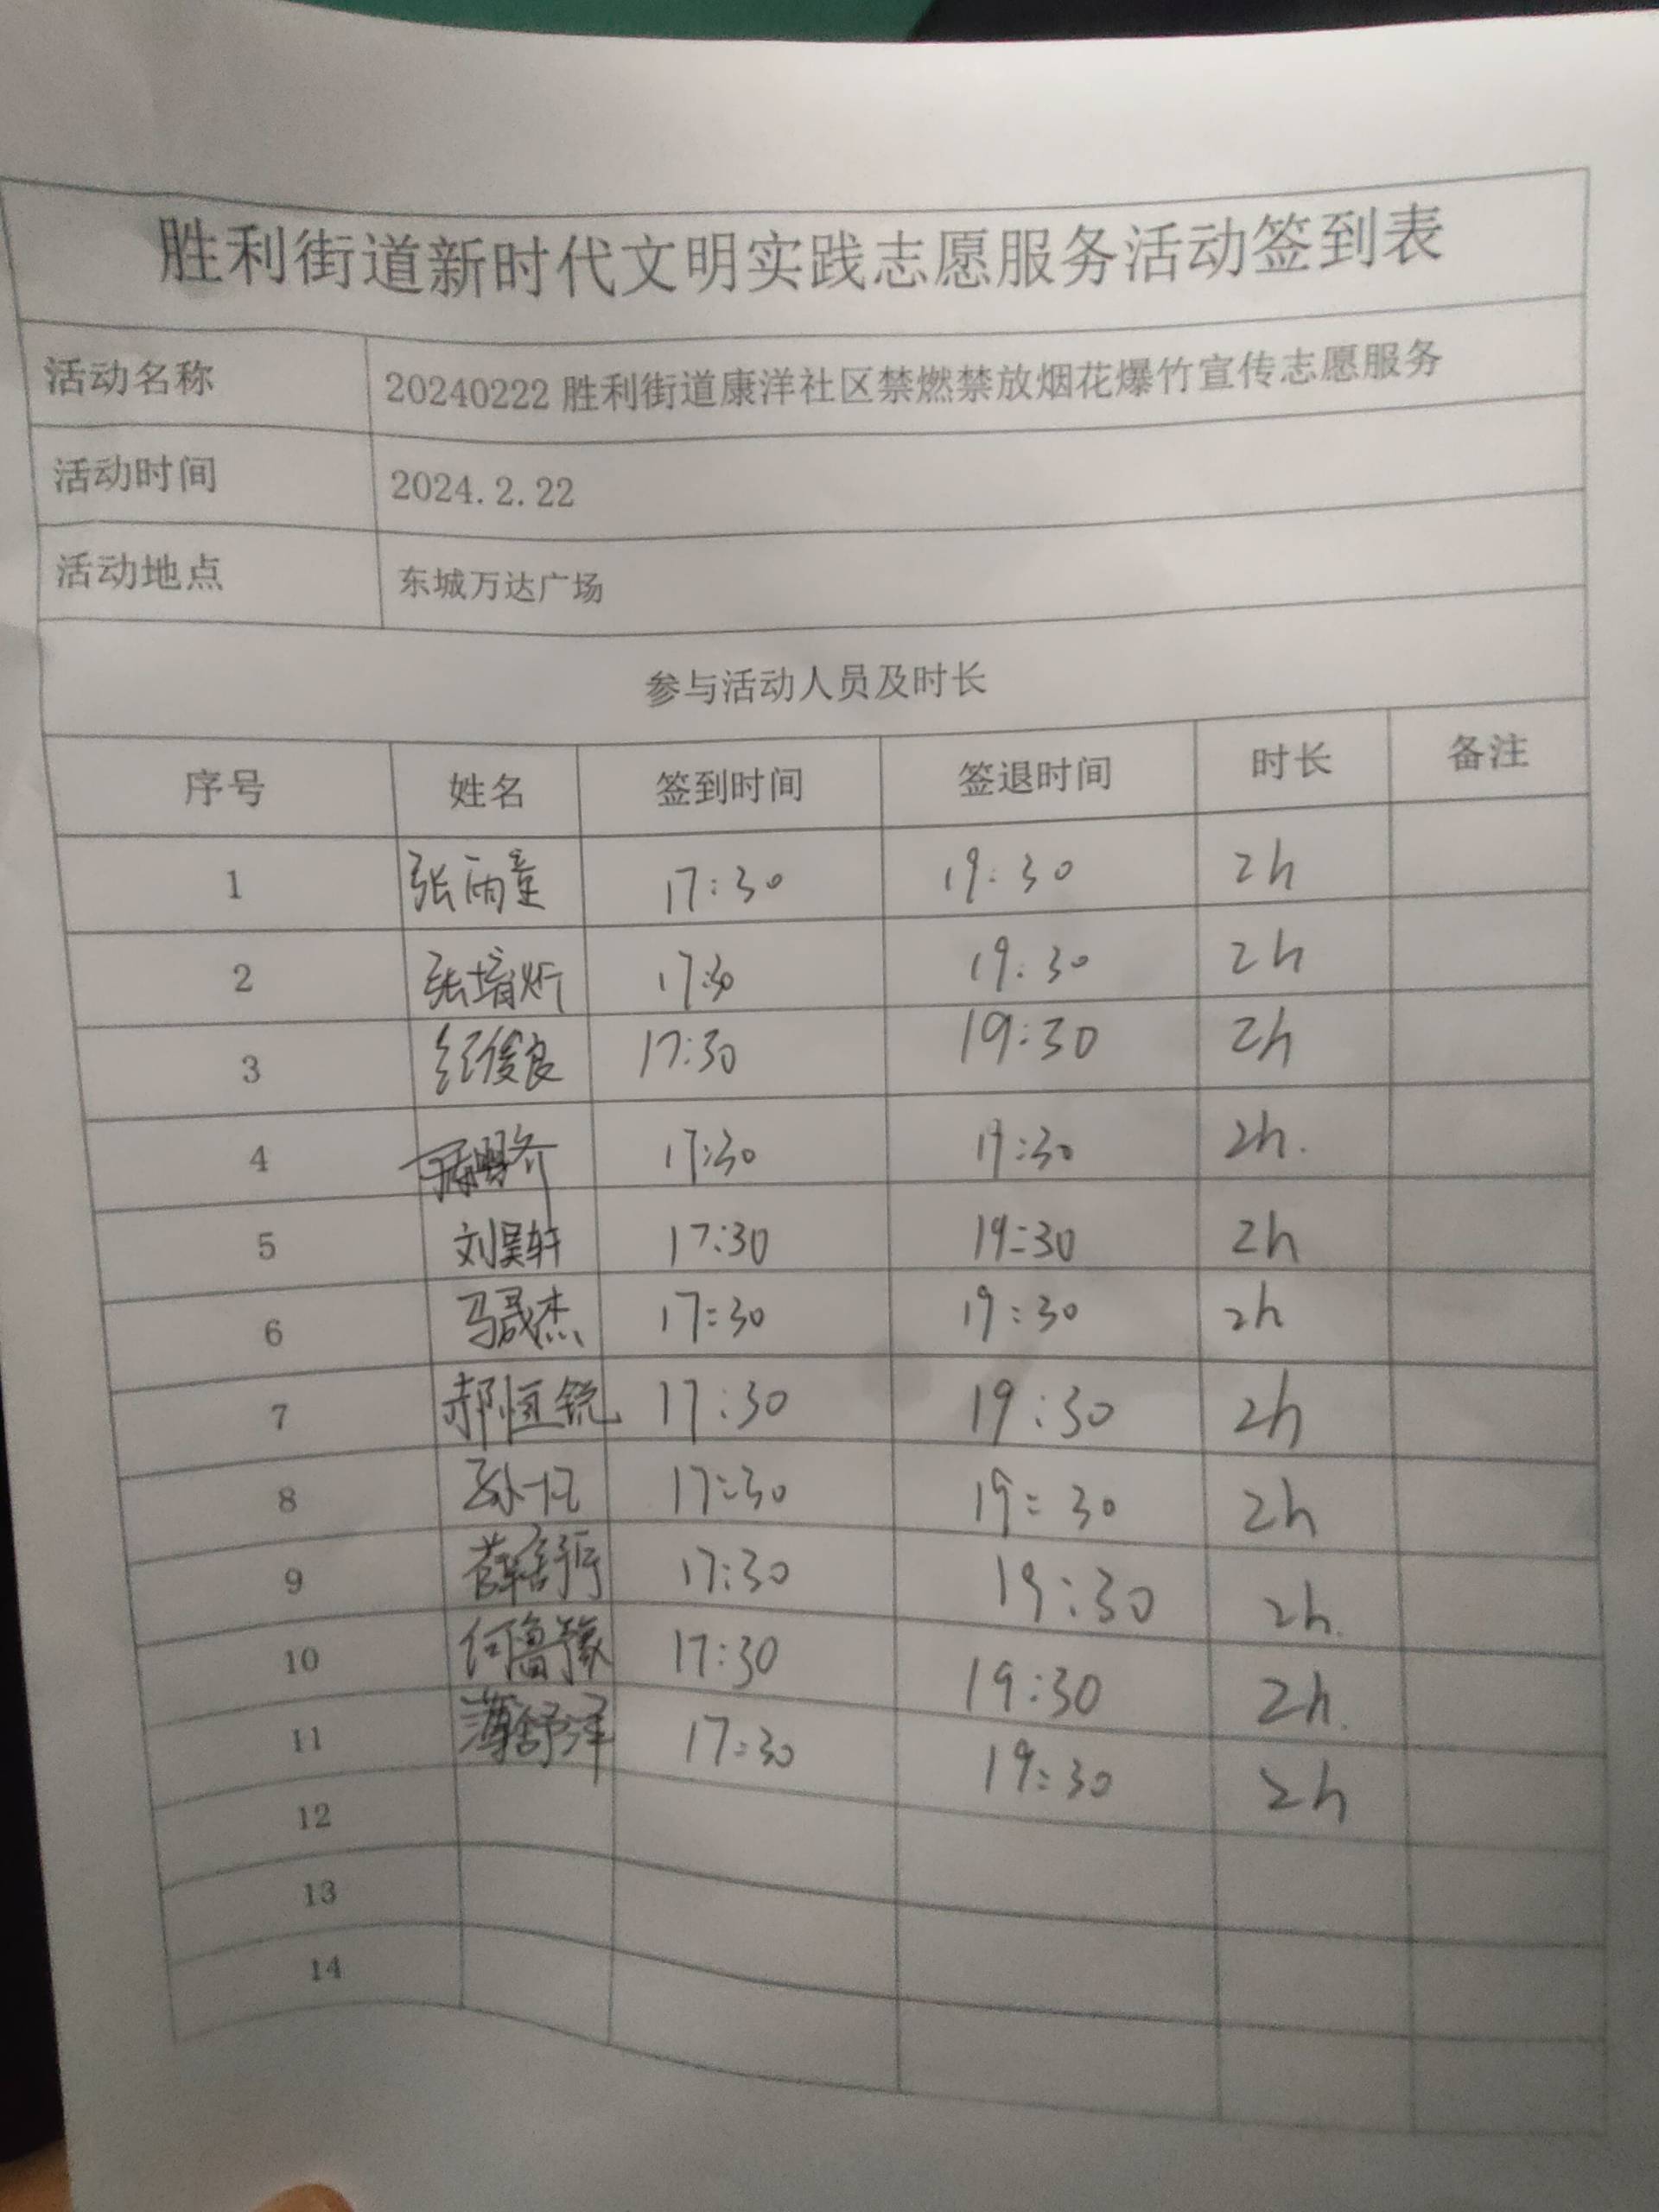 胜利街道新时代文明实践志愿服务活动签到表
活动名称 20240222 胜利街道康洋社区禁燃禁放烟花爆竹宣传志愿服务
活动时间 2024.2.22
活动地点 东城万达广场
参与活动人员及时长
序号 姓名 签到时间 签退时间 时长 备注
1 张雨童 17:30 19:30 2h
2 张堉炘 17:30 19:30 2h
3 纪俊良 17:30 19:30 2h
4 17:30 19:30 2h.
5 刘昊轩 17:30 19:30 2h
6 马晟杰 17:30 19:30 2h
7 郝恒锐 17:30 19:30 2h
8 孙一凡 17:30 19:30 2h
9 17:30 19:30 2h.
10 何鲁豫 17:30 19:30 2h.
11 薄舒泽 17:30 19:30 2h
12
13
14